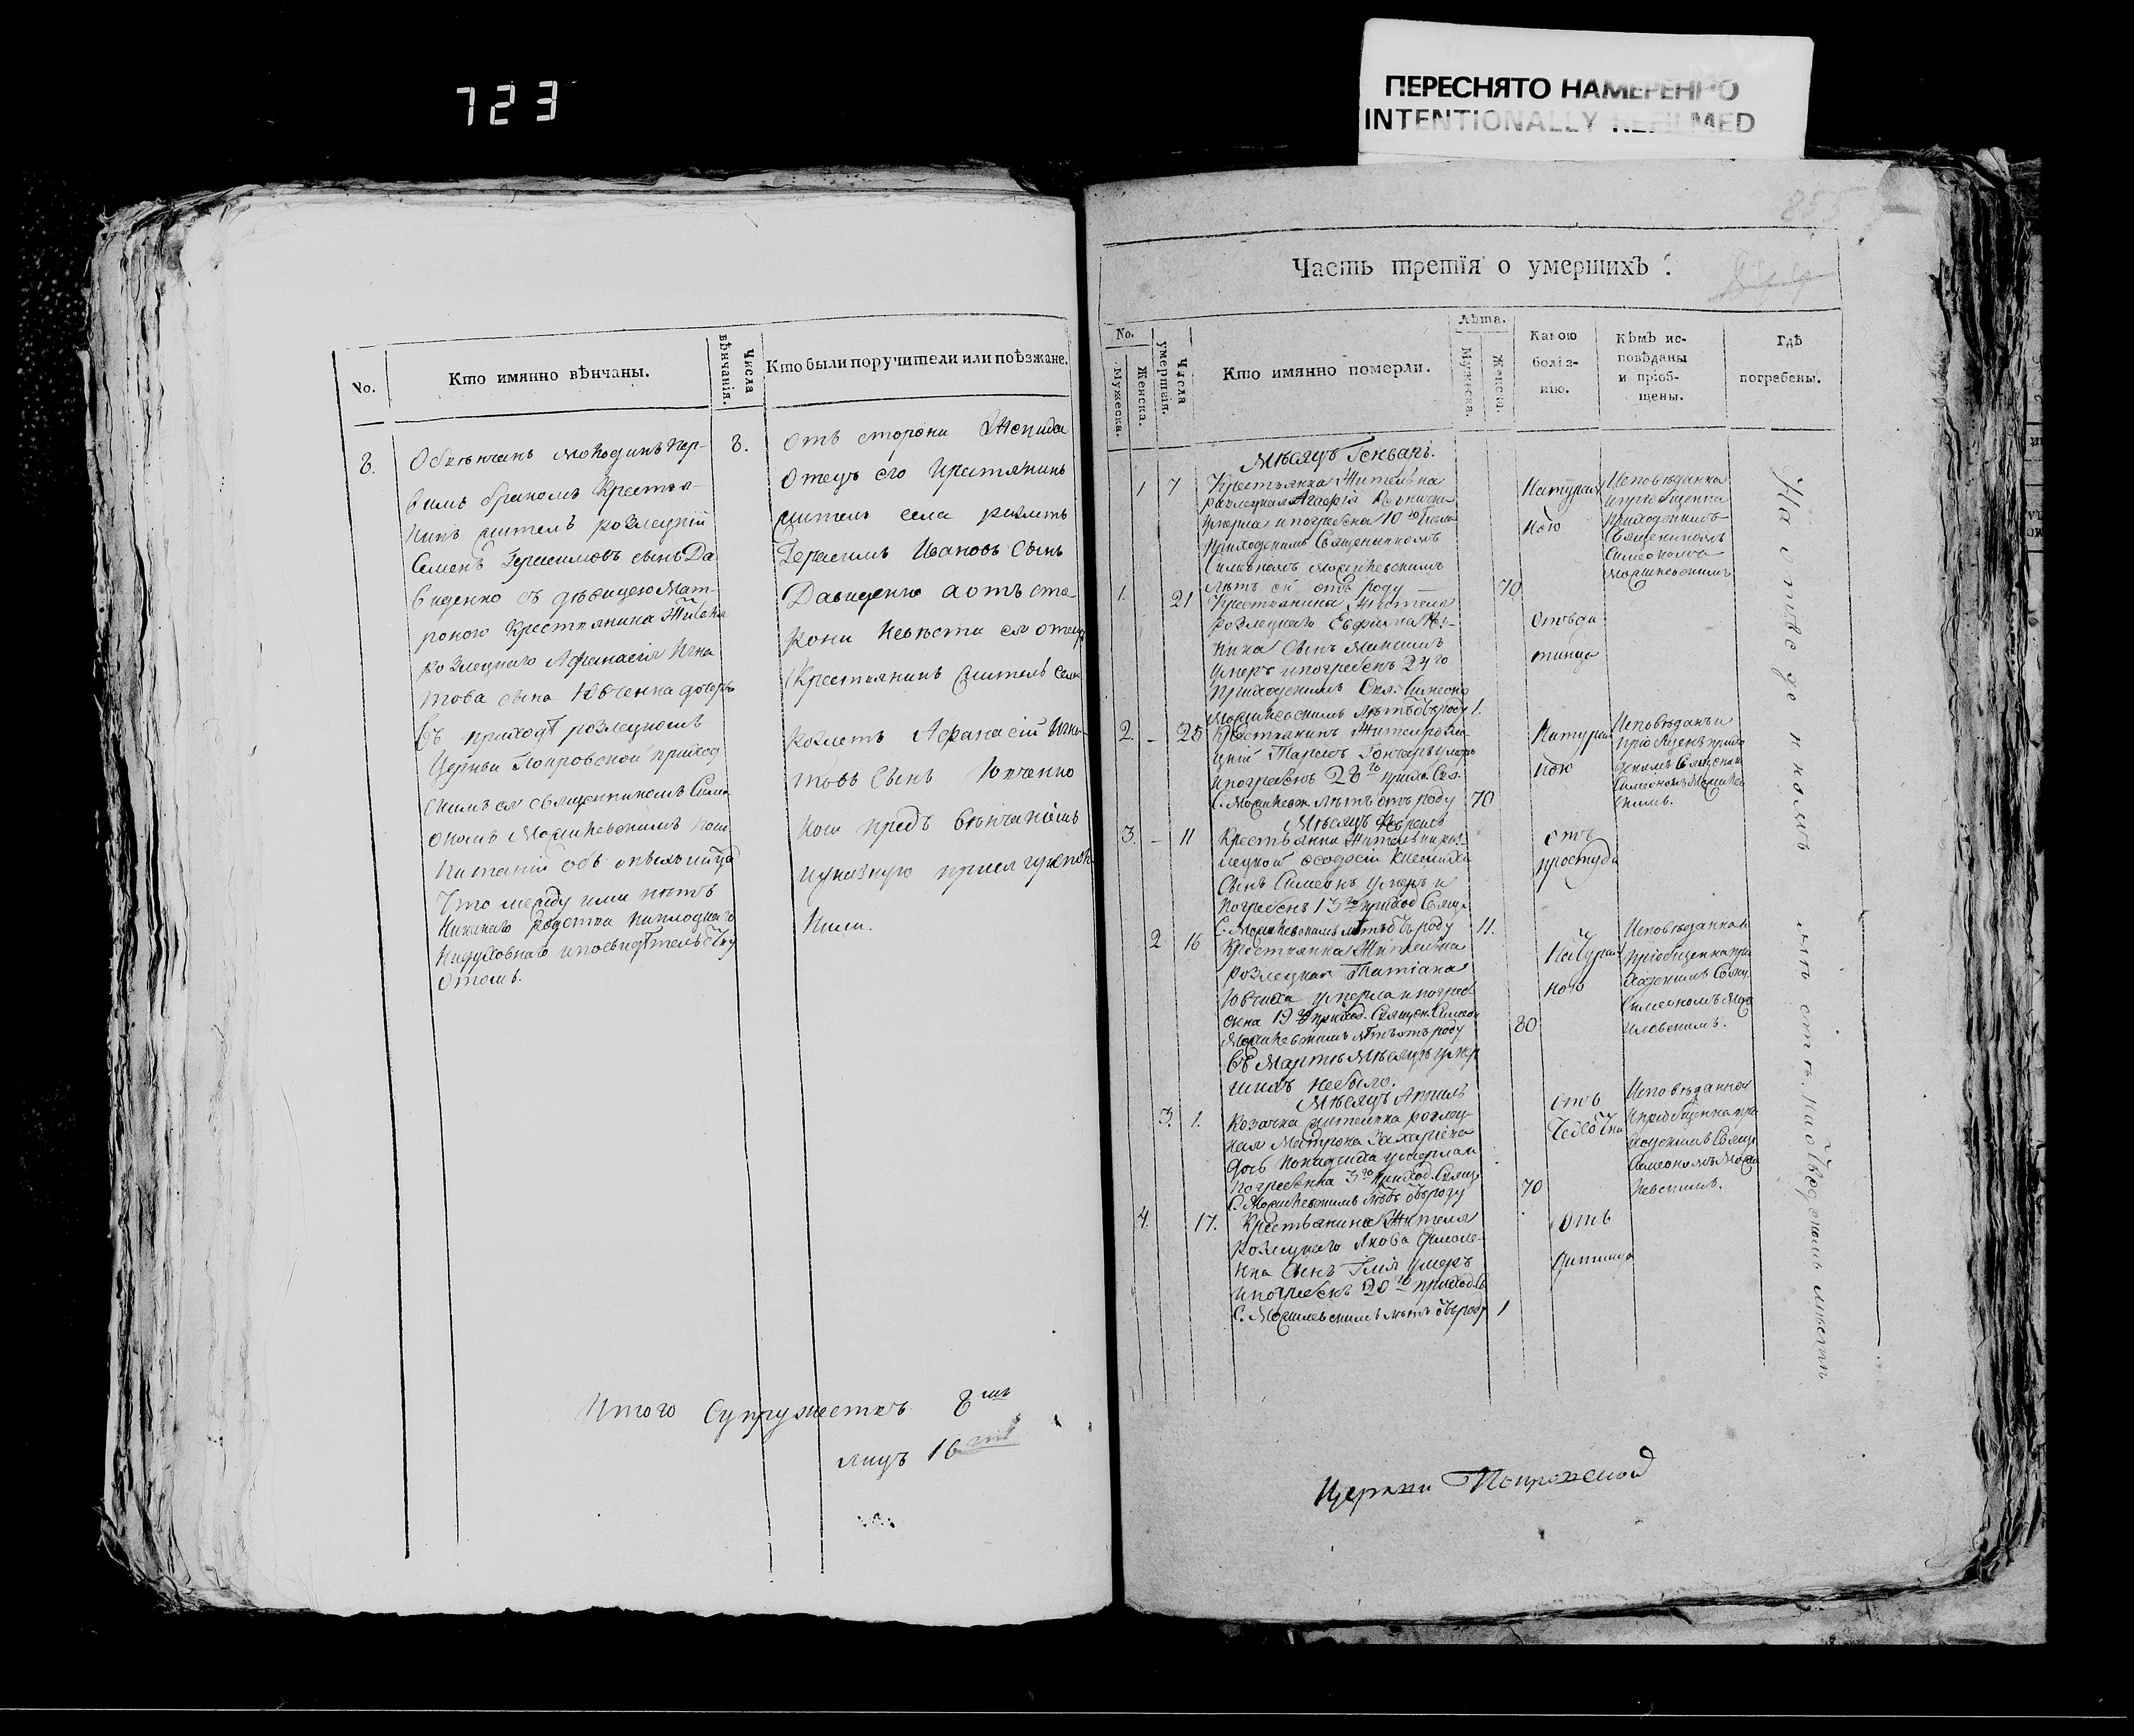 723
ПЕРЕСНЯТО НАМЕРЕННО
INTENTIONALLY REFILMED
No.
Кто имянно вѣнчаны.
Числа вѣнчанія.
Кто были поручители или поѣзжане.
8.
8.
Обвѣнчанъ молодикъ пер-
вимъ бракомъ Крестья-
нинъ житель розлецкій
Семенъ Герасимовъ сынъ Да
виденко съ дѣвицею Мат-
роною Крестянина Жителя
розлецкаго Афанасія Игна
това сына Ювченка дочерью
въ приходѣ розлецкомъ
Церкви Покровской приход
скимъ ея священникомъ Симе
ономъ Можилевскимъ по
Что между ими нѣтъ
Никакаго родства ниплоцкаго
Нидуховнаго
отомъ.
отъ сторони Жениха
отецъ его Крестянинъ
житель села розлетъ
Герасимъ Ивановъ Сынъ
Давиденко а отъ сто
рони Невѣсти ея отецъ
Крестянинъ Житель села
розлетъ Афанасій Игна-
товъ Сынъ Ювченко
кои предъ вѣнчаніемъ
ними.
Итого Супружествъ 8 мь
лицъ 16 ть
855
Часть третія о умершихъ.
No.
Мужеска.
Женска.
Числа умершія.
Кто имянно померли.
Лѣта.
Мужеска.
Женска.
Какою
болѣз-
нію.
Кѣмъ ис-
повѣданы
и пріоб-
щены.
Гдѣ
погребены.
Мѣсяцъ Генварь.
1 7 Крестьянка Жителька
розлецкая Агафія
умерла и погребена 10 го Числа
Приходскимъ Священникомъ
Симеономъ Можилевскимъ
лѣтъ ей отъ роду 70
Натурал
ною
Исповѣданна
и пріобщенна
Приходскимъ
Священникомъ
Симеономъ
Можилевскимъ
1. 21 Крестянина Жителя
розлецкаго Евфима
Сынъ Максимъ
умеръ и погребенъ 24 го
Приходскимъ Свя. Симеоно
Можилевскимъ лѣтъ отъ роду 1.
2. 25 Крестянинъ Житель розле
цкій Тарасъ Гончаръ умеръ
и погребенъ 28 го прихо. Свя.
С. Можилевск. лѣтъ отъ роду 70
Натурал
ною
Исповѣданъ и
пріобщенъ прихо
дскимъ Священи
Симеономъ Можилев
скимъ.
Мѣсяцъ Февраль
3. 11 Крестьянки Жительки роз-
лецкой Феодосіи
Сынъ Симеонъ умеръ и
Погребенъ 13 го приход Свящ.
С. Можилевскимъ лѣтъ отъ роду 11.
отъ
простуди
2 16 Крестянка Жителька
розлецкая Татіана
Ювчиха умерла и погреб-
ена 19 го приход. Священ. Симеон
Можилевскимъ лѣтъ отъ роду 80
Натурал
ною
Исповѣданна и
пріобщенна при
ходскимъ Свящ.
Симеономъ Можи
левскимъ.
Въ Мартѣ Мѣсяцѣ умер
шихъ небыло.
Мѣсяцъ Апрѣль
3. 1. Козачка жителька розлец-
кая Матрона Захаріева
дочь умерла и
погребенна 3 го приход. Свящ.
С. Можилевскимъ лѣтъ отъ роду 70
отъ
Исповѣданна
и пріобщенна при
ходскимъ Свящ.
Симеономъ Можи
левскимъ.
4. 17. Крестьянина Жителя
розлецкаго Якова Ярмоле-
нка Сынъ Илія умеръ
и погребенъ 20 го приход. Св
С. Можилевскимъ лѣтъ отъ роду 1
отъ
На отведенномъ
мѣстѣ
Церкви Покровской